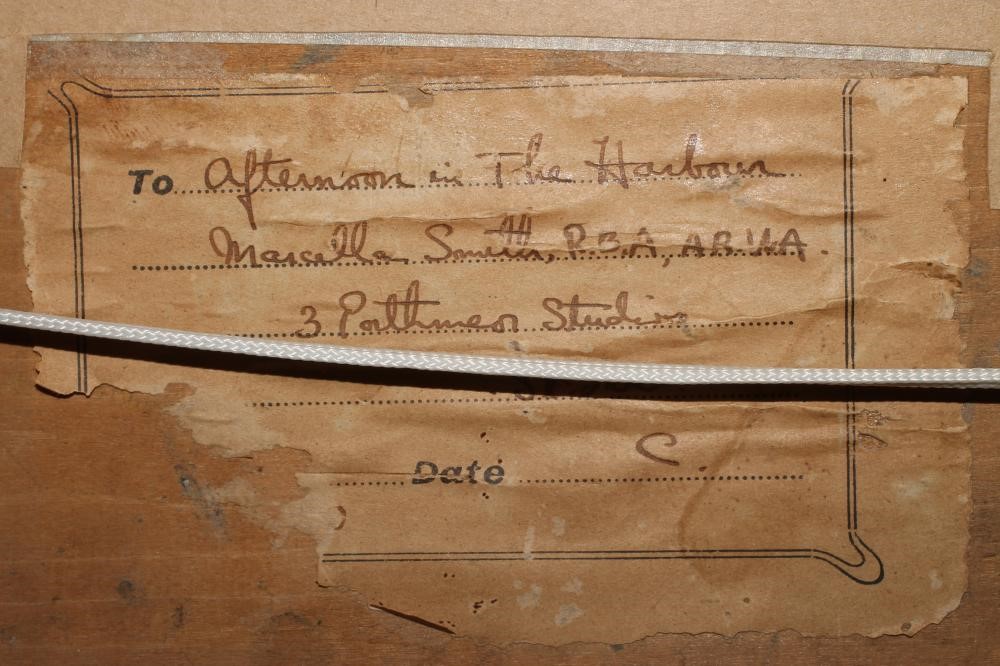 To Afternoon in The Harbour
Marcella Smith, R.B.A, A.R.W.A.
3 Porthmeor Studios
Date C